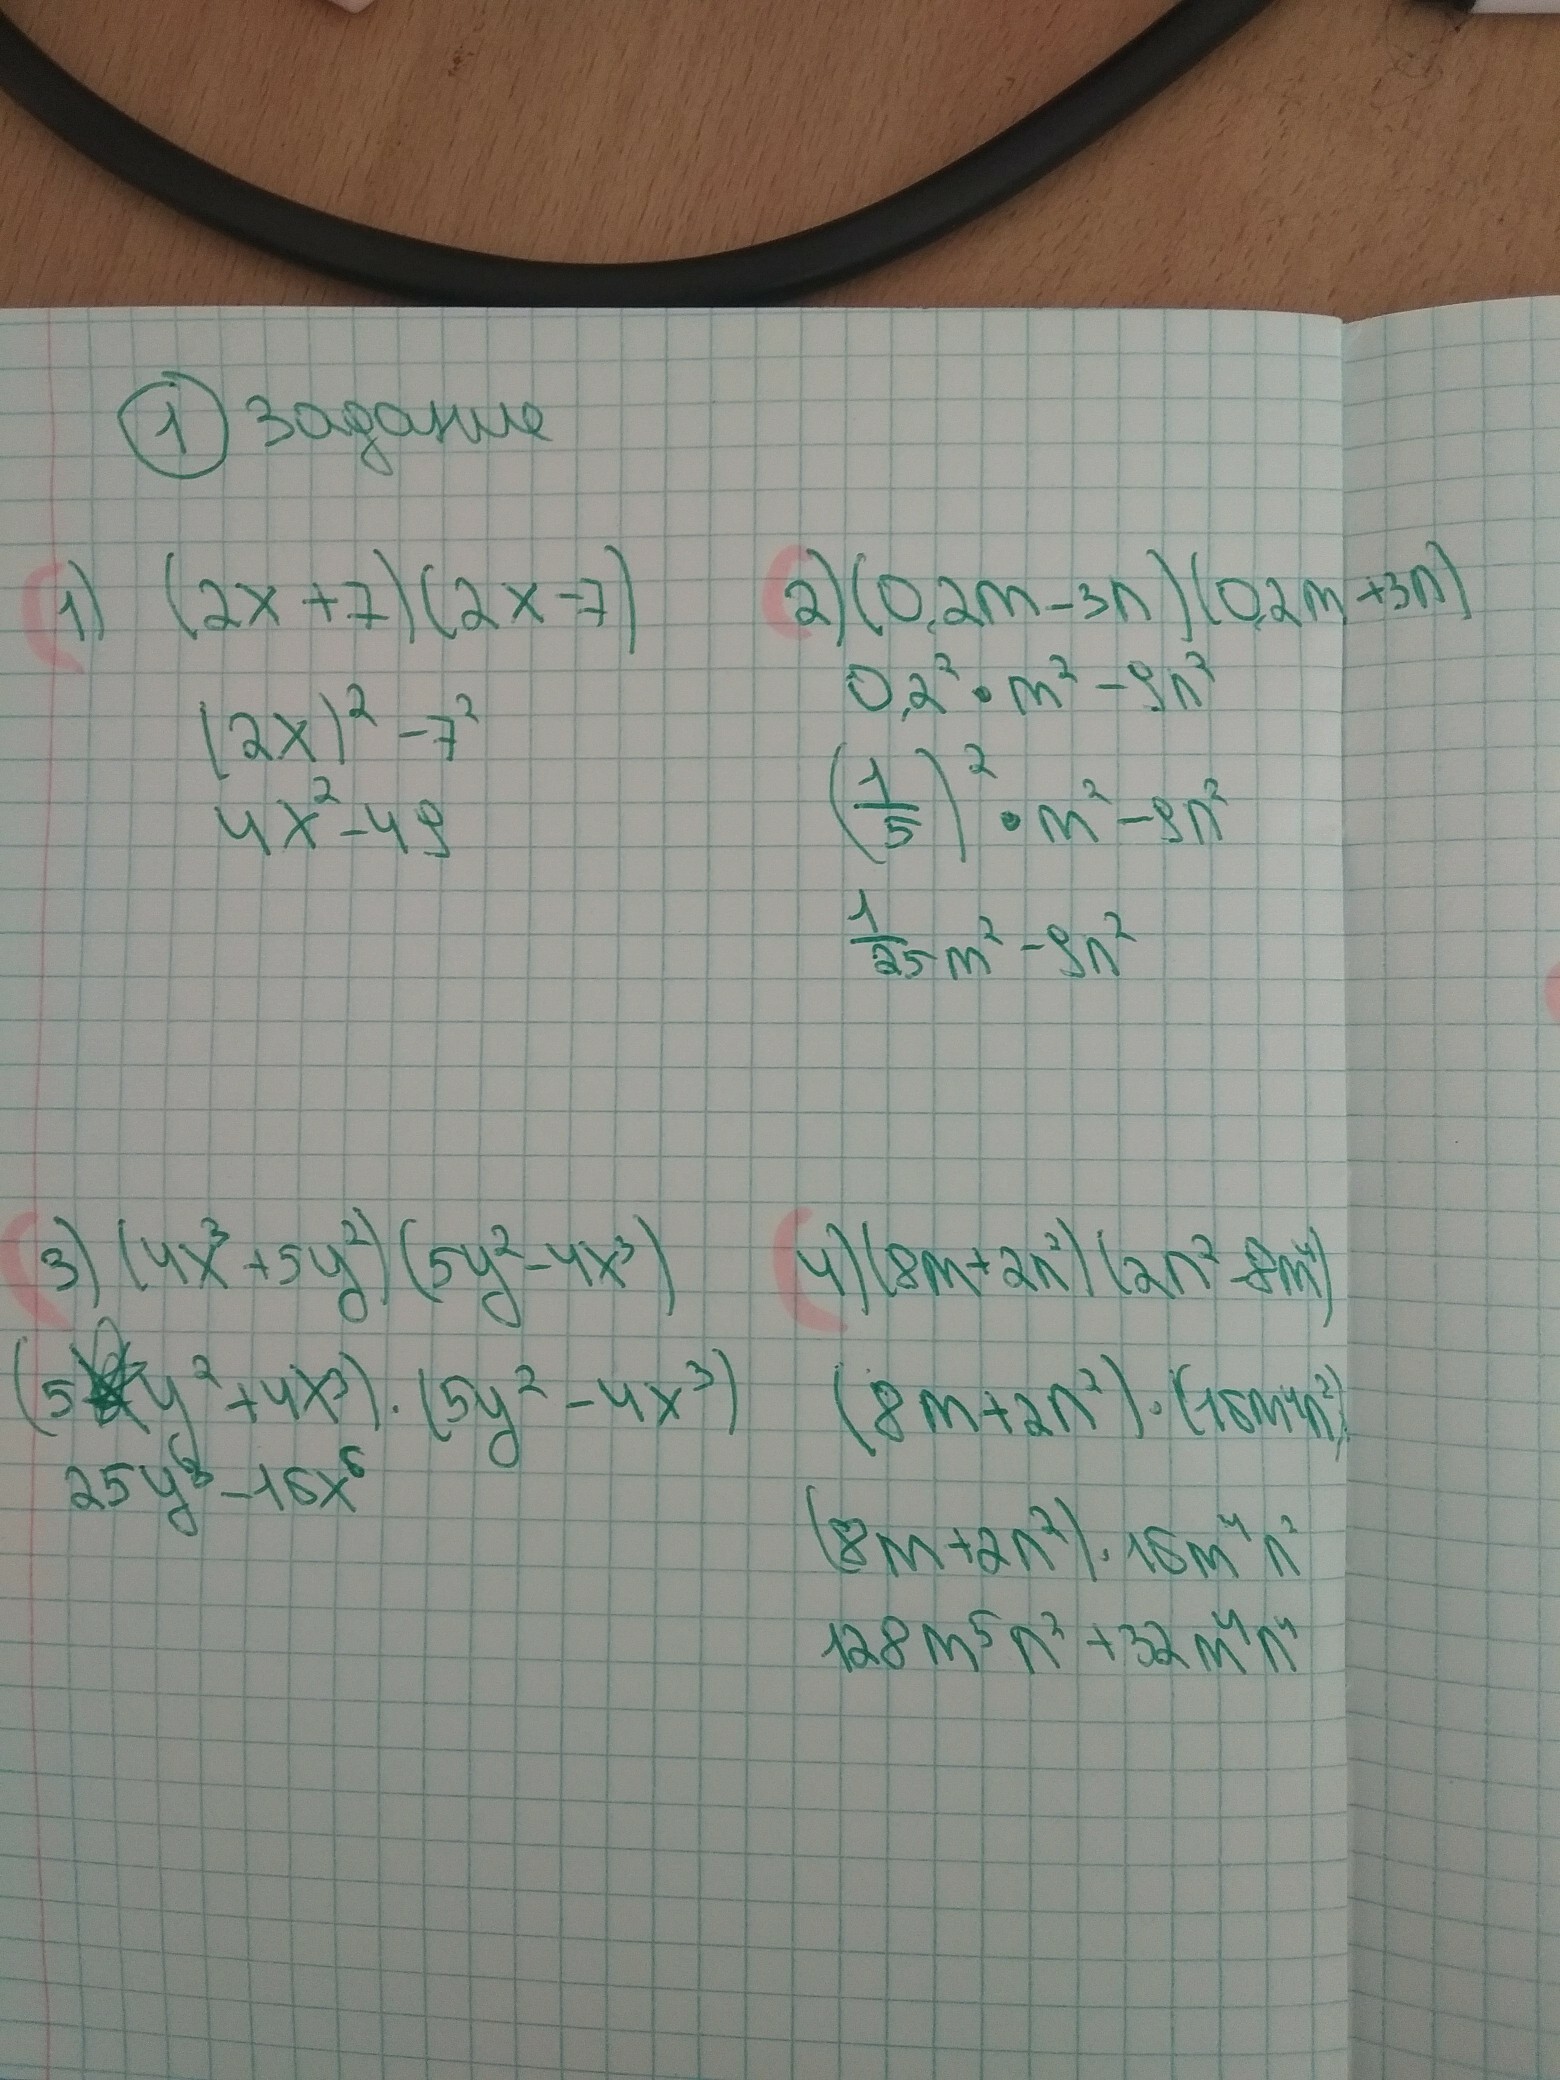 ① Задание
1) (2x+7)(2x-7)
(2x)² -7²
4x²-49
2) (0,2m-3n)(0,2m+3n)
0,2² • m² -9n²
(1/5)² • m² -9n²
1/25 m² -9n²
3) (4x³+5y²)(5y²-4x³)
(5y²+4x³)·(5y²-4x³)
-16x⁶
4) (8m+2n²)(2n²-8m⁴)
(8m+2n²)·(16m⁴n²)
(8m+2n²)·16m⁴n²
128m⁵n² +32m⁴n⁴